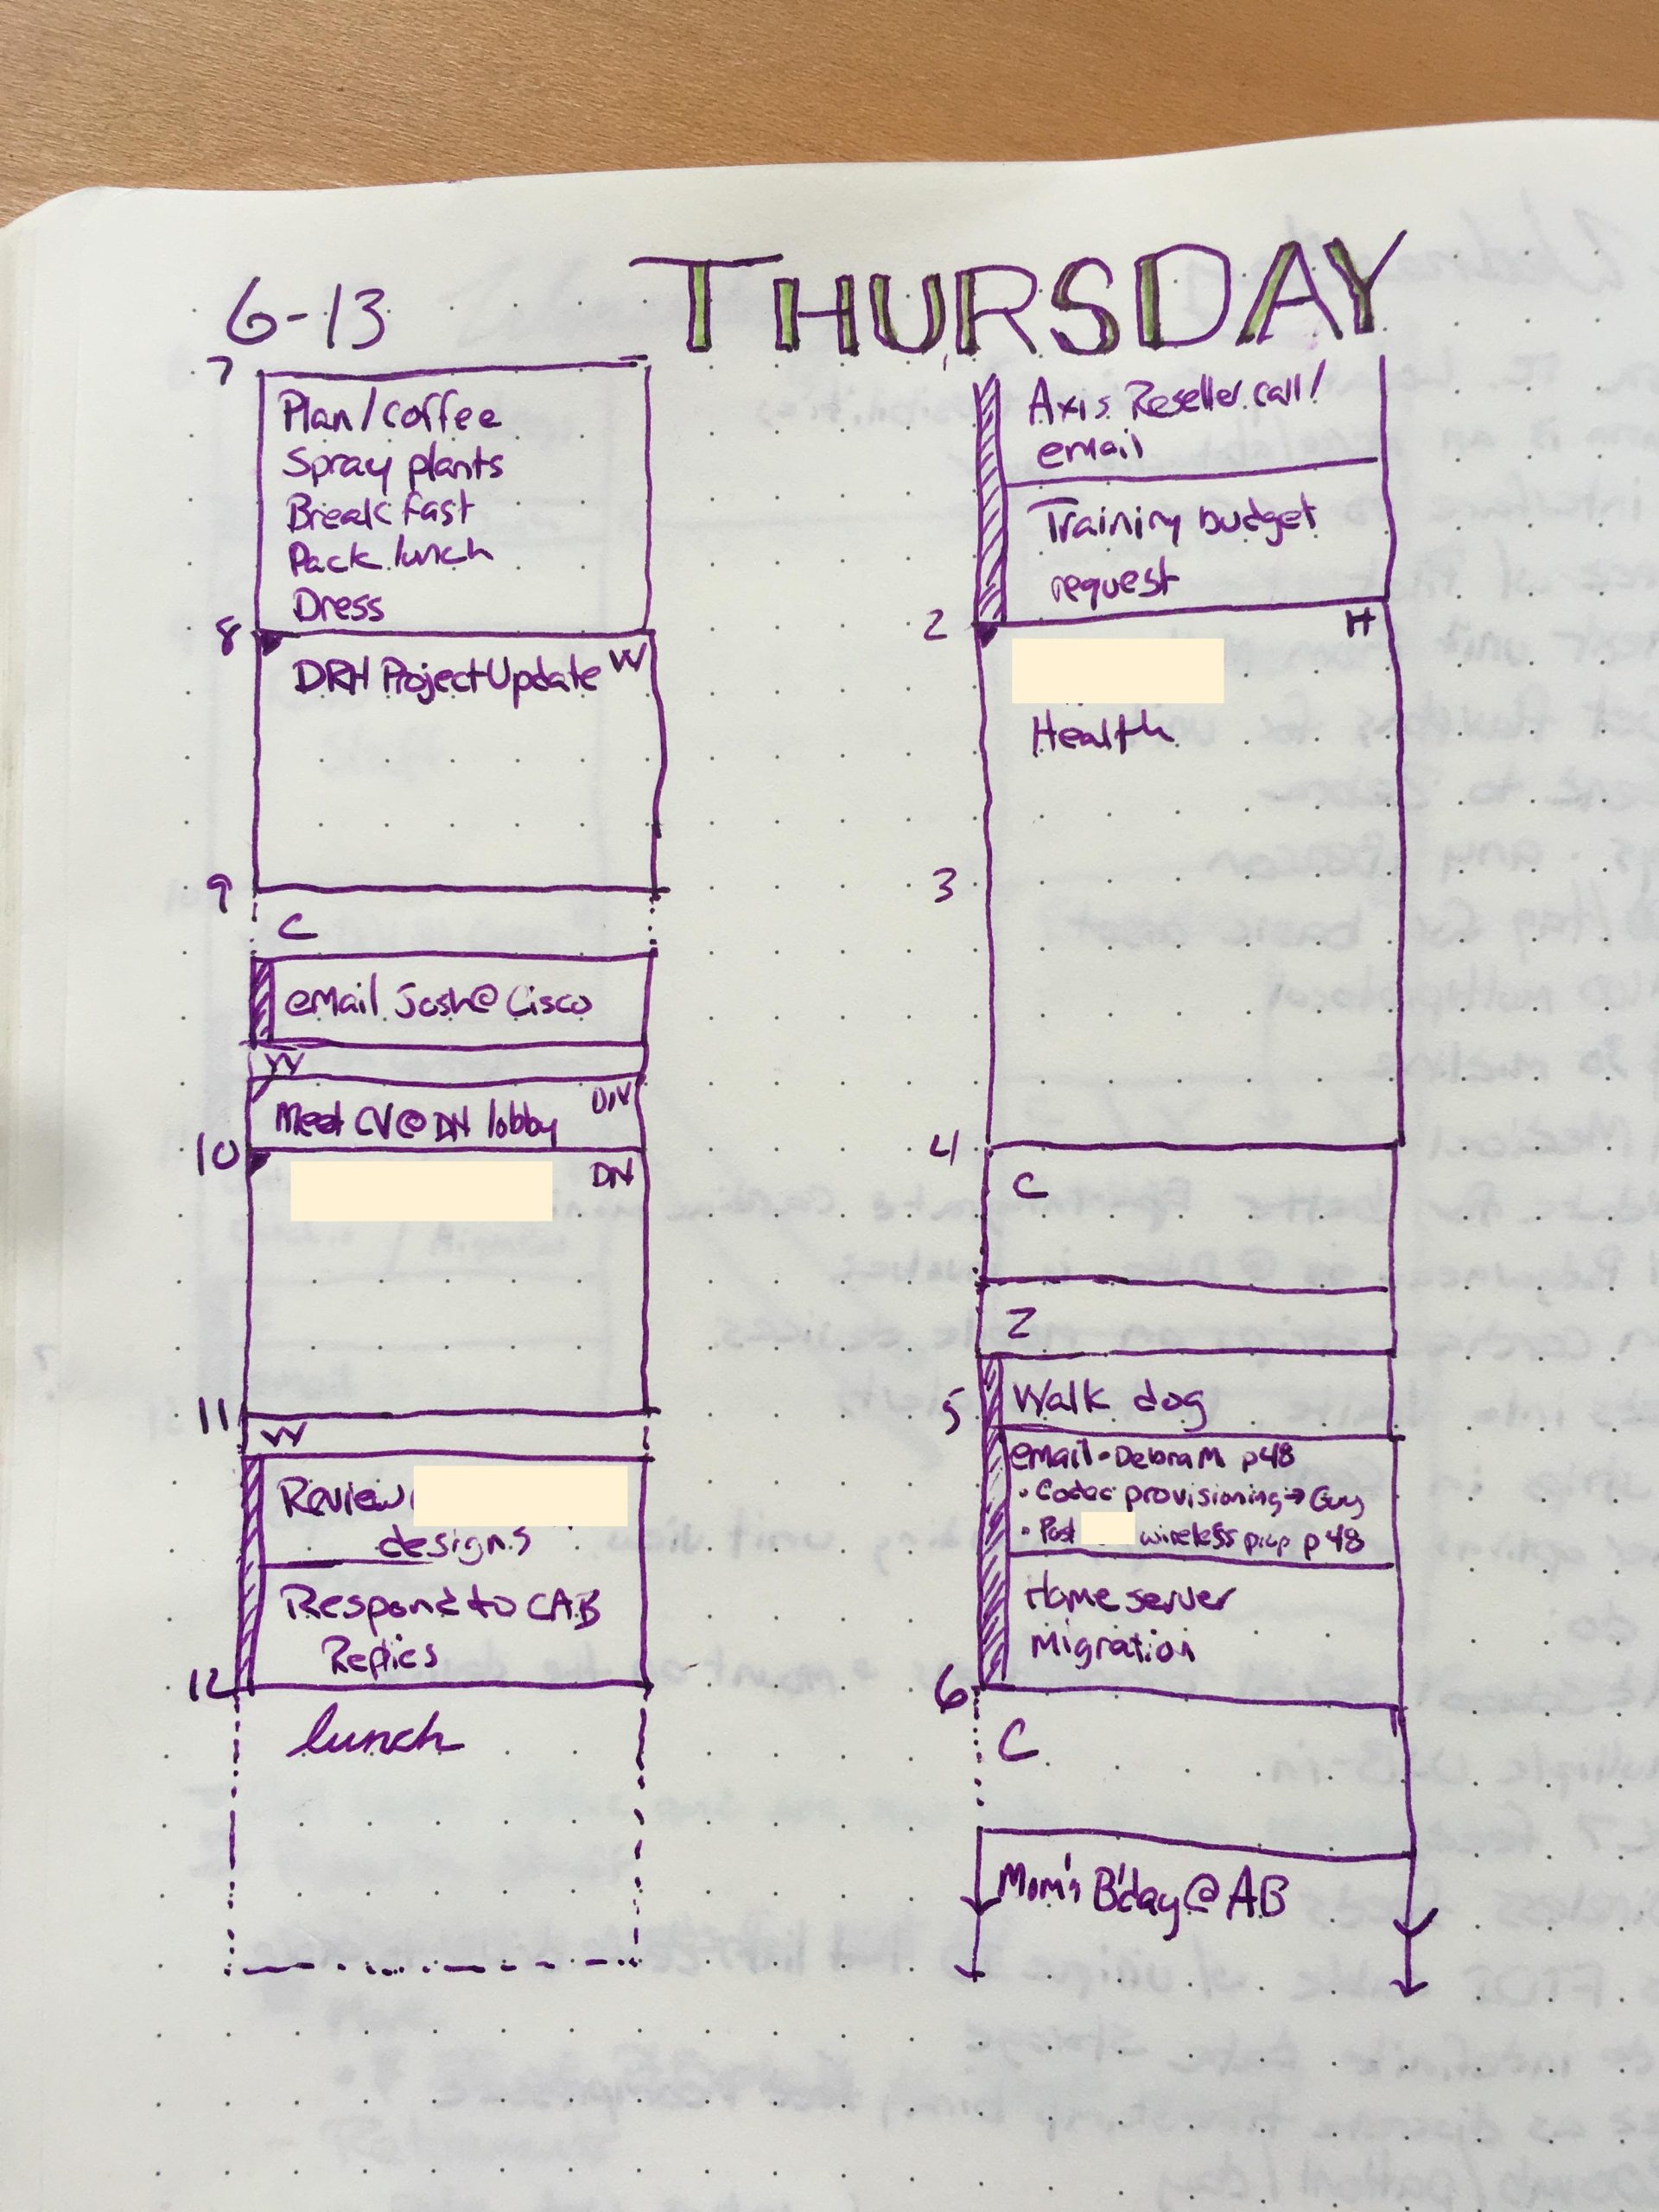 6-13
THURSDAY
7
Plan/coffee
Spray plants
Breakfast
Pack lunch
Dress
8
DRH Project Update W
9
C
email Josh@Cisco
W
Meet CV@DN lobby
10
DN
11
W
Review
designs
Respond to CAB
Replies
12
lunch
Axis Reseller call/
email
Training budget
request
2
H
Health
3
4
C
Z
5
Walk dog
email • Debra M p48
• Codec provisioning → Guy
• Post wireless prop p48
Home server
Migration
6
C
Mom's B'day @ AB